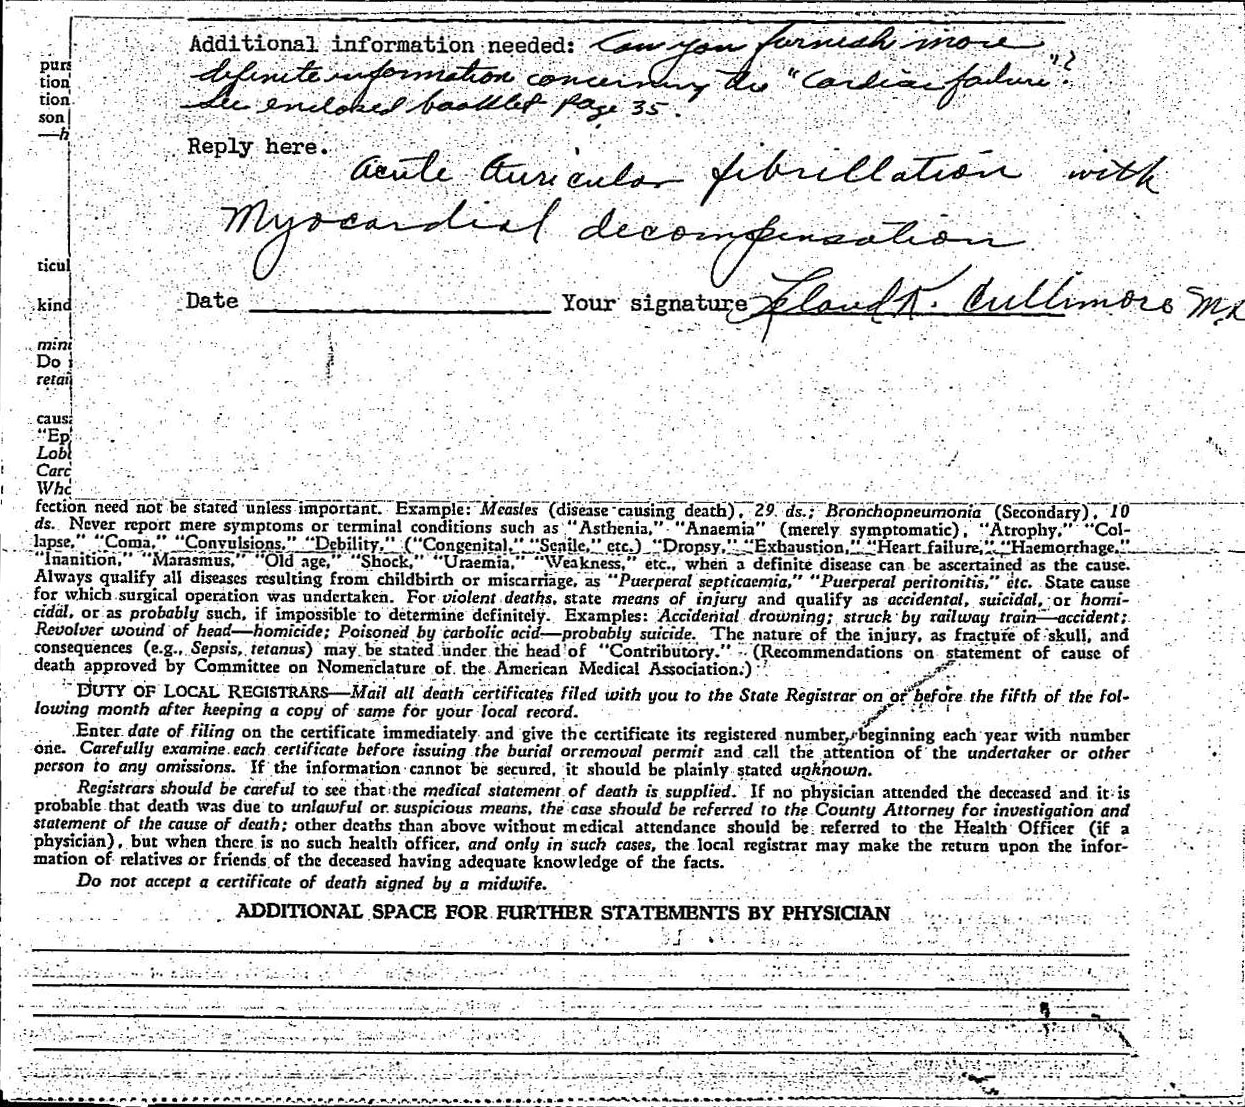 Additional information needed: Can you furnish more
definite information concerning the "Cardiac failure"?
See enclosed booklet page 35.
Reply here.
acute auricular fibrillation with
Myocardial decompensation
Date Your signature K. Cullimore M.D
purs
tion
tion
son
—h
ticul
kind
mini
Do
retai
caus
"Ep
Lobl
Carc
Who
fection need not be stated unless important. Example: Measles (disease causing death), 29 ds.; Bronchopneumonia (Secondary), 10
ds. Never report mere symptoms or terminal conditions such as "Asthenia," "Anaemia" (merely symptomatic), "Atrophy," "Col-
lapse," "Coma," "Convulsions," "Debility," ("Congenital," "Senile," etc.) "Dropsy," "Exhaustion," "Heart failure," "Haemorrhage."
"Inanition," "Marasmus," "Old age," "Shock," "Uraemia," "Weakness," etc., when a definite disease can be ascertained as the cause.
Always qualify all diseases resulting from childbirth or miscarriage, as "Puerperal septicaemia," "Puerperal peritonitis," etc. State cause
for which surgical operation was undertaken. For violent deaths, state means of injury and qualify as accidental, suicidal, or homi-
cidal, or as probably such, if impossible to determine definitely. Examples: Accidental drowning; struck by railway train—accident;
Revolver wound of head—homicide; Poisoned by carbolic acid—probably suicide. The nature of the injury, as fracture of skull, and
consequences (e.g., Sepsis, tetanus) may be stated under the head of "Contributory." (Recommendations on statement of cause of
death approved by Committee on Nomenclature of the American Medical Association.)
DUTY OF LOCAL REGISTRARS—Mail all death certificates filed with you to the State Registrar on or before the fifth of the fol-
lowing month after keeping a copy of same for your local record.
Enter date of filing on the certificate immediately and give the certificate its registered number, beginning each year with number
one. Carefully examine each certificate before issuing the burial or removal permit and call the attention of the undertaker or other
person to any omissions. If the information cannot be secured, it should be plainly stated unknown.
Registrars should be careful to see that the medical statement of death is supplied. If no physician attended the deceased and it is
probable that death was due to unlawful or suspicious means, the case should be referred to the County Attorney for investigation and
statement of the cause of death; other deaths than above without medical attendance should be referred to the Health Officer (if a
physician), but when there is no such health officer, and only in such cases, the local registrar may make the return upon the infor-
mation of relatives or friends of the deceased having adequate knowledge of the facts.
Do not accept a certificate of death signed by a midwife.
ADDITIONAL SPACE FOR FURTHER STATEMENTS BY PHYSICIAN